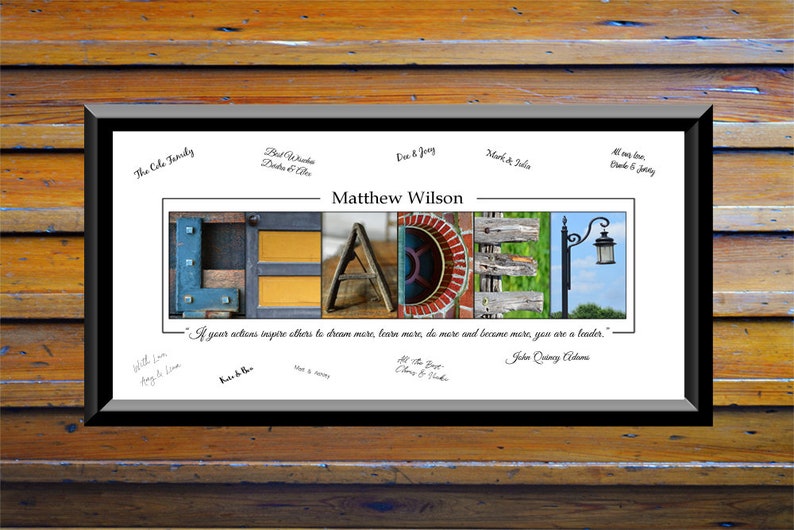 The Cole Family
Best Wisches
Deidra & Alex
Dee & Joey
Mark & Julia
All our love,
& Jonny
Matthew Wilson
LEADER
“If your actions inspire others to dream more, learn more, do more and become more, you are a leader.”
John Quincy Adams
With Love
Amy & Liam
Kate & Ben
Matt & Ashley
All The Best